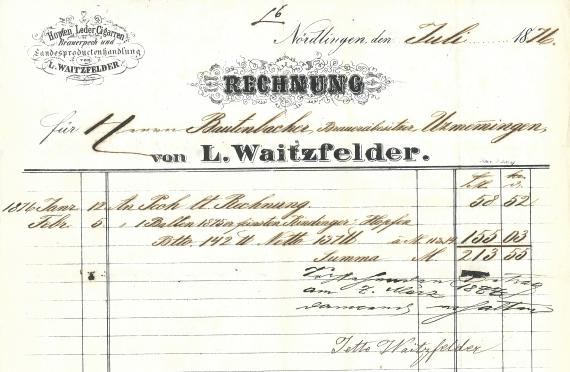 16
Hopfen, Leder, Cigarren,
Brauerpech und
Landesproductenhandlung
von
L. WAITZFELDER
Nördlingen, den Juli 1876.
RECHNUNG
für Herrn Bautenbacher, Brauereibesitzer, Utzmemingen,
von L. Waitzfelder.
1876 Janr. 12. An Pech lt Rechnung. 58 52
Febr. 5. 1 Ballen 1875er feinsten Kindinger-Hopfen
Btto. 142 ℔ Netto 137 ℔ à M 155 03
Summa M 213 55
am 7. März 1876
dankend erhalten
Jette Waitzfelder